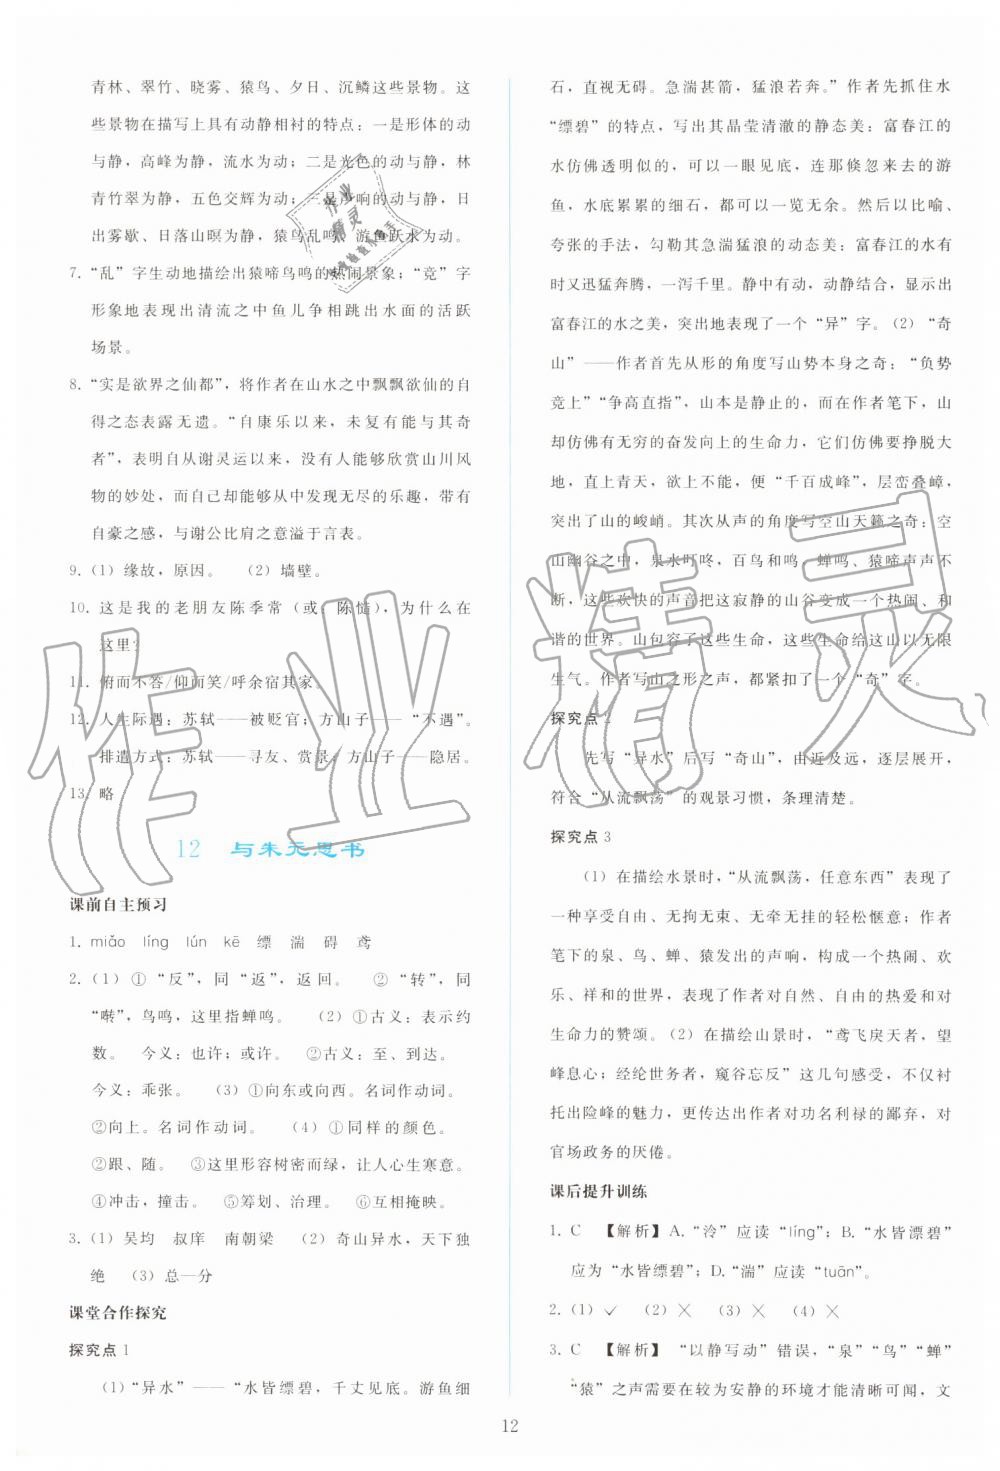 青林、翠竹、晓雾、猿鸟、夕日、沉鳞这些景物。这
些景物在描写上具有动静相衬的特点：一是形体的动
与静，高峰为静，流水为动；二是光色的动与静，林
青竹翠为静，五色交辉为动；三是声响的动与静，日
出雾歇、日落山暝为静，猿鸟乱鸣、游鱼跃水为动。
7. “乱”字生动地描绘出猿啼鸟鸣的热闹景象；“竞”字
形象地表现出清流之中鱼儿争相跳出水面的活跃
场景。
8. “实是欲界之仙都”，将作者在山水之中飘飘欲仙的自
得之态表露无遗。“自康乐以来，未复有能与其奇
者”，表明自从谢灵运以来，没有人能够欣赏山川风
物的妙处，而自己却能够从中发现无尽的乐趣，带有
自豪之感，与谢公比肩之意溢于言表。
9. (1) 缘故，原因。 (2) 墙壁。
10. 这是我的老朋友陈季常（或：陈慥），为什么在
这里？
11. 俯而不答/仰而笑/呼余宿其家。
12. 人生际遇：苏轼——被贬官；方山子——“不遇”。
排遣方式：苏轼——寻友、赏景；方山子——隐居。
13. 略
12 与朱元思书
课前自主预习
1. miǎo líng lún kē 缥 湍 碍 鸢
2. (1) ① “反”，同“返”，返回。 ② “转”，同
“啭”，鸟鸣，这里指蝉鸣。 (2) ①古义：表示约
数。 今义：也许；或许。 ②古义：至、到达。
今义：乖张。 (3) ①向东或向西。名词作动词。
②向上。名词作动词。 (4) ①同样的颜色。
②跟、随。 ③这里形容树密而绿，让人心生寒意。
④冲击，撞击。 ⑤筹划、治理。 ⑥互相掩映。
3. (1) 吴均 叔庠 南朝梁 (2) 奇山异水，天下独
绝 (3) 总—分
课堂合作探究
探究点 1
(1) “异水”——“水皆缥碧，千丈见底。游鱼细
石，直视无碍。急湍甚箭，猛浪若奔。”作者先抓住水
“缥碧”的特点，写出其晶莹清澈的静态美：富春江的
水仿佛透明似的，可以一眼见底，连那倏忽来去的游
鱼，水底累累的细石，都可以一览无余。然后以比喻、
夸张的手法，勾勒其急湍猛浪的动态美：富春江的水有
时又迅猛奔腾，一泻千里。静中有动，动静结合，显示出
富春江的水之美，突出地表现了一个“异”字。(2) “奇
山”——作者首先从形的角度写山势本身之奇：“负势
竞上”“争高直指”，山本是静止的，而在作者笔下，山
却仿佛有无穷的奋发向上的生命力，它们仿佛要挣脱大
地，直上青天，欲上不能，便“千百成峰”，层峦叠嶂，
突出了山的峻峭。其次从声的角度写空山天籁之奇：空
山幽谷之中，泉水叮咚，百鸟和鸣，蝉鸣、猿啼声声不
断，这些欢快的声音把这寂静的山谷变成一个热闹、和
谐的世界。山包容了这些生命，这些生命给这山以无限
生气。作者写山之形之声，都紧扣了一个“奇”字。
探究点 2
先写“异水”后写“奇山”，由近及远，逐层展开，
符合“从流飘荡”的观景习惯，条理清楚。
探究点 3
(1) 在描绘水景时，“从流飘荡，任意东西”表现了
一种享受自由、无拘无束、无牵无挂的轻松惬意；作者
笔下的泉、鸟、蝉、猿发出的声响，构成一个热闹、欢
乐、祥和的世界，表现了作者对自然、自由的热爱和对
生命力的赞颂。(2) 在描绘山景时，“鸢飞戾天者，望
峰息心；经纶世务者，窥谷忘反”这几句感受，不仅衬
托出险峰的魅力，更传达出作者对功名利禄的鄙弃，对
官场政务的厌倦。
课后提升训练
1. C 【解析】A. “泠”应读“líng”；B. “水皆漂碧”
应为“水皆缥碧”；D. “湍”应读“tuān”。
2. (1) ✓ (2) ✕ (3) ✕ (4) ✕
3. C 【解析】 “以静写动”错误，“泉”“鸟”“蝉”
“猿”之声需要在较为安静的环境才能清晰可闻，文
12
作业精灵
作业
精灵